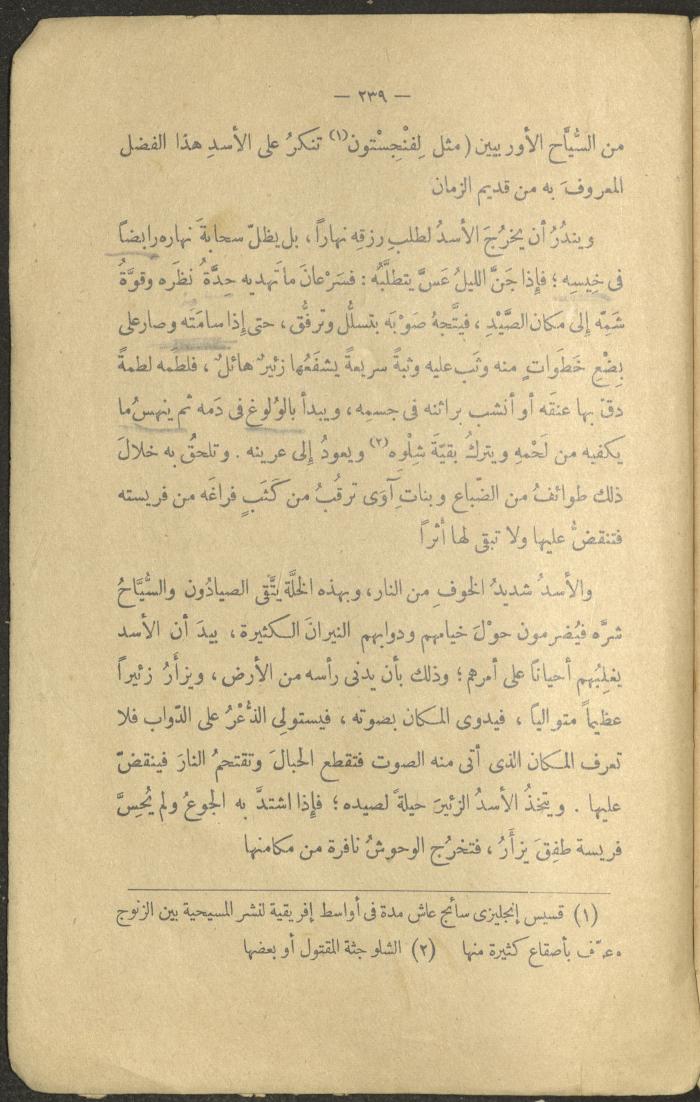 — ٢٣٩ —
من السُّيَّاح الأوربيين (مثل لِفنْجِسْتون(١) تنكرُ على الأسدِ هذا الفضل
المعروفَ به من قديم الزمان
ويندُرُ أن يخرُجَ الأسدُ لطلبِ رزقِه نهاراً، بل يظلّ سحابةَ نهاره رابضاً
فى خِيسِه؛ فإذا جَنَّ الليلُ عَسَّ يتطلَّبُه: فسَرْعانَ ما تهديه حِدَّةُ نظَره وقوَّةُ
شَمِّه إلى مكان الصَّيْدِ، فيتَّجهُ صَوْبَه بتسلُّل وترفُّق، حتى إذا سامَتَه وصار على
بِضْعِ خَطَواتٍ منه وثَب عليه وثبةً سريعةً يشفَعُها زئيرٌ هائلٌ، فلطَمه لطمةً
دقّ بها عنقَه أو أنشب براثنه فى جسمِه، ويبدأ بالوُلوغ فى دَمه ثم ينهسُ ما
يكفيه من لَحْمِه ويتركُ بقيّةَ شِلْوِه(٢) ويعودُ إلى عرينه. وتلحقُ به خلالَ
ذلك طوائفُ من الضّباع وبناتِ آوَى ترقُبُ من كَثَبٍ فراغَه من فريسته
فتنقضُّ عليها ولا تبقى لها أثراً
والأسدُ شديدُ الخوفِ من النار، وبهذه الخلَّة يتَّقى الصيادُون والسُّيَّاحُ
شرَّه فيُضرمون حوْلَ خيامهم ودوابهم النيرانَ الكثيرة، بيدَ أن الأسد
يغلِبُهم أحياناً على أمرهم؛ وذلك بأن يدنى رأسه من الأرض، ويزأَرُ زئيراً
عظيماً متوالياً، فيدوى المكان بصوته، فيستولِى الذُّعْرُ على الدّواب فلا
تعرف المكان الذى أتى منه الصوت فتقطع الحبالَ وتقتحمُ النارَ فينقضّ
عليها. ويتخذُ الأسدُ الزئيرَ حيلةً لصيده؛ فإذا اشتدَّ به الجوعُ ولم يُحِسَّ
فريسة طفِقَ يزأَرُ، فتخرُج الوحوشُ نافرة من مكامنها
(١) قسيس إنجليزى سائح عاش مدة فى أواسط إفريقية لنشر المسيحية بين الزنوج
وعرّف بأصقاع كثيرة منها (٢) الشلو جثة المقتول أو بعضها